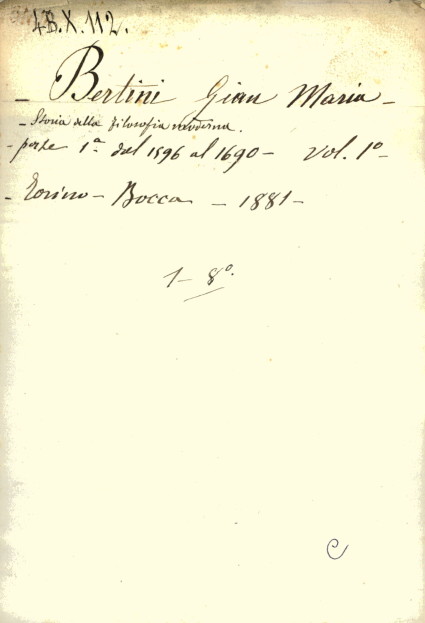 4B.X.112.
- Bertini Gian Maria -
- Storia della filosofia moderna.
- parte 1ª dal 1596 al 1690 - vol. 1º -
- Torino - Bocca - 1881 -
1 - 8º.
C